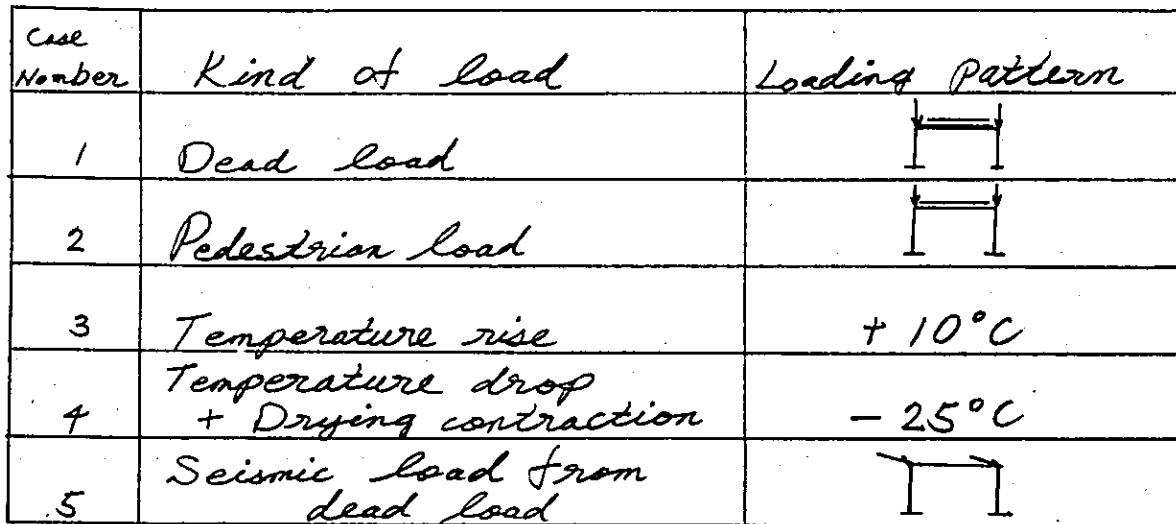 Case
Number
Kind of load
Loading pattern
1
Dead load
2
Pedestrian load
3
Temperature rise
+ 10°C
4
Temperature drop
+ Drying contraction
- 25°C
5
Seismic load from
dead load